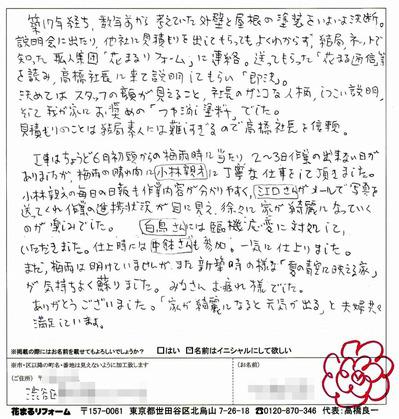 築17年経ち、数年前から考えていた外壁と屋根の塗装をいよいよ決断。
説明会に出たり、他社に見積もりを出してもらってもよくわからず、結局、ネットで
知った職人集団「花まるリフォーム」に連絡。送ってもらった「花まる通信」等
を読み、高橋社長に来て説明してもらい「即決」。
決めては スタッフの顔が見えること、社長のきさくな人柄、しつこい説明、
そして我が家にお奨めの「フッ素塗料」でした。
見積もりのことは結局素人には難しすぎるので高橋社長を信頼。
工事はちょうど6月初頭からの梅雨時に当たり、2~3日作業の出来ない日が
ありましたが、梅雨の晴れ間に小林親方に丁寧な仕事をして頂きました。
小林親方の毎日の日報も作業内容が分かりやすく、シロさんがメールで写真を
送ってくれ作業の進捗状況が目に見え、徐々に家が綺麗になっていく
のが楽しみでした。 白鳥さんには臨機応変に対処して、
いただきました。仕上時には さんも参加、一気に仕上りました。
まだ、梅雨は明けていませんが、また新築時の様な「夏の青空に映える家」
が気持ちよく蘇りました。みなさんお疲れ様でした。
ありがとうございました。「家が綺麗になると元気が出る」と夫婦共々
満足しています。
※掲載の際にはお名前を載せてもよろしいでしょうか? □はい ☑名前はイニシャルにして欲しい
※市・区以降の町名・番地は見えないように加工致します
(ご住所) 〒
渋谷区
花まるリフォーム 〒157-0061 東京都世田谷区北烏山7-26-18 ☎0120-870-346 代表:高橋良一